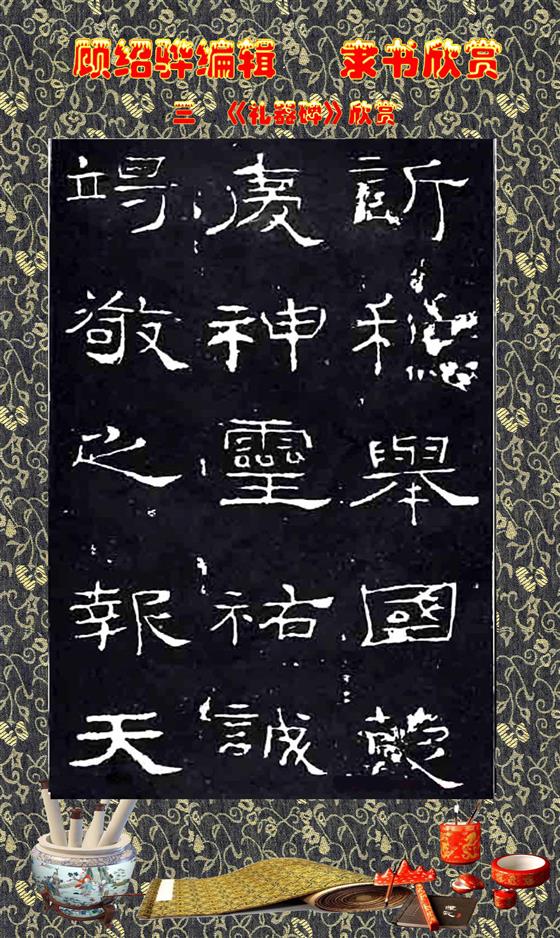 顾绍骅编辑 隶书欣赏
三 《礼器碑》欣赏
訢舉國蒙
慶神靈祐誠
竭敬之報天